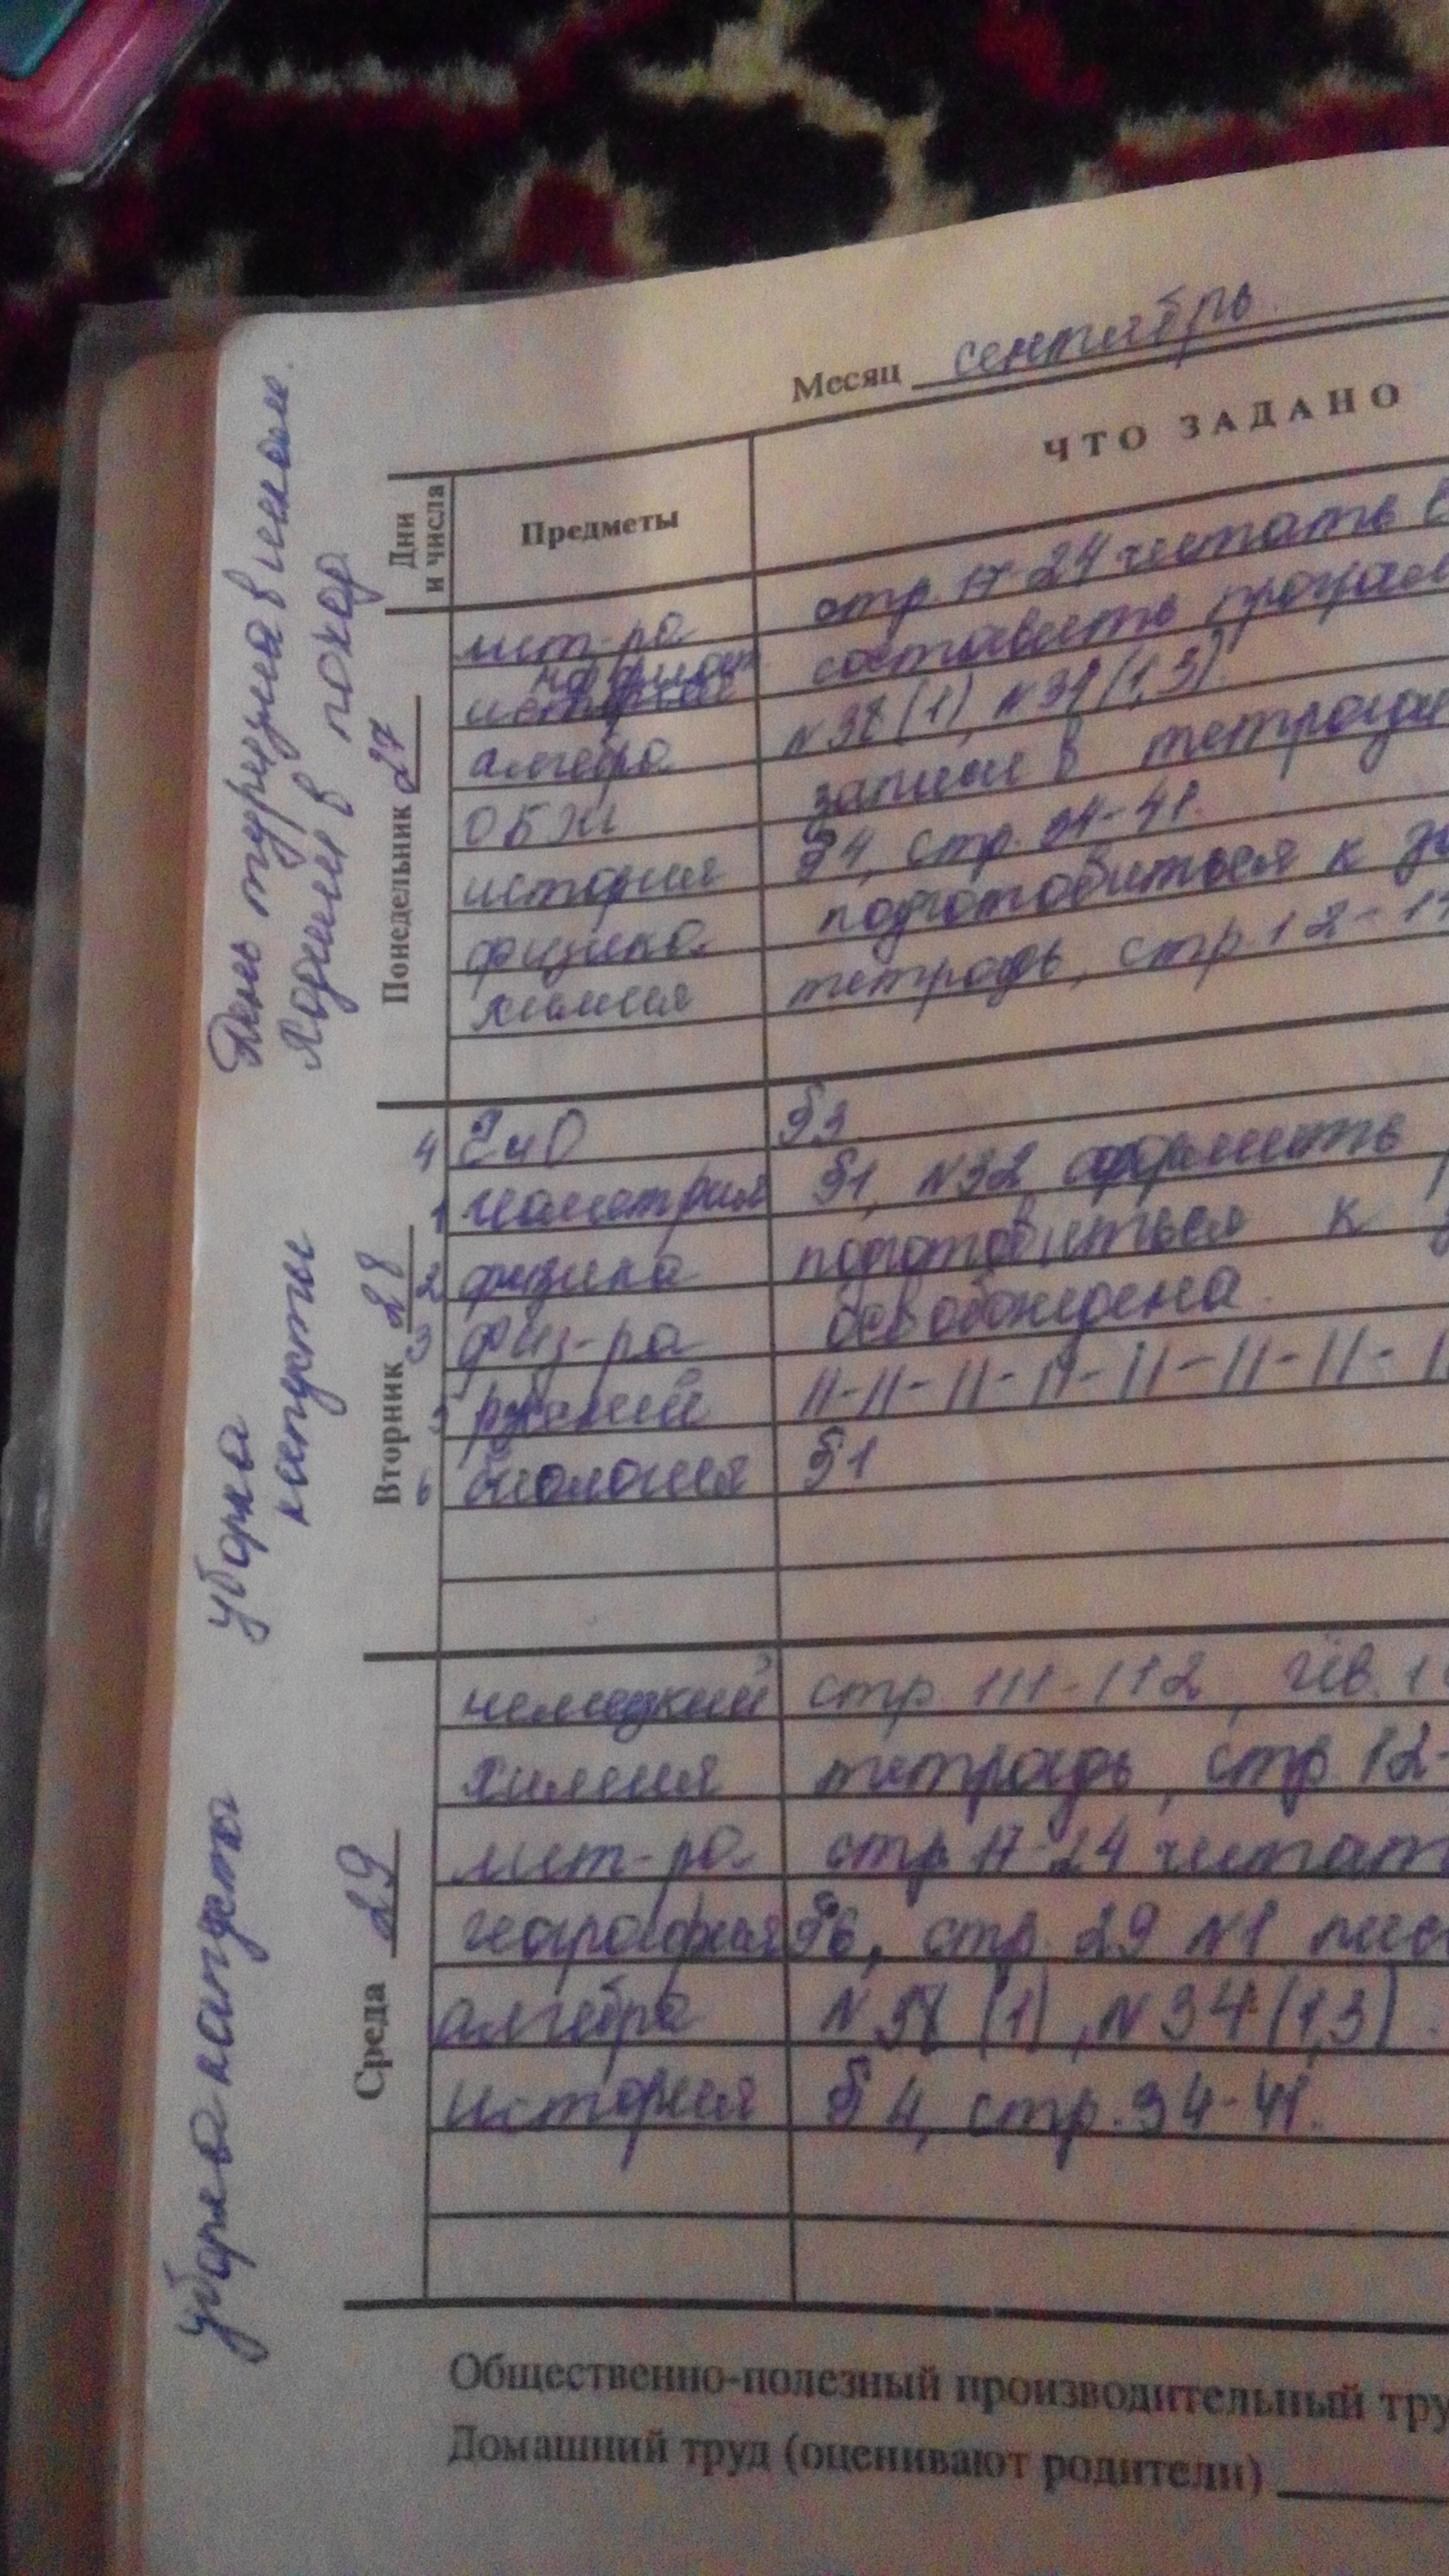 Месяц сентябрь
Дни и числа
Предметы
ЧТО ЗАДАНО
День туризма в школе.
Ходили в поход
Понедельник 27
лит-ра стр. 17-24 читать
составить
алгебра N38(1), N34(1,3).
ОБЖ записи в тетради
история §4, стр. 34-41.
физика подготовиться к
химия тетрадь, стр. 12-
уборка
капусты
Вторник 28
4 ЧиО §3
1 геометрия §1, N32 оформить
2 физика подготовиться к
3 физ-ра освобождена.
5 русский 11-11-11-11-11-11-11-
6 биология §1
уборка капусты
Среда 29
немецкий стр. 111-112,
химия тетрадь, стр. 12-
лит-ра стр. 17-24 читат
география §6, стр. 29 N1
алгебра N38 (1), N34 (1,3).
история § 4, стр. 34-41.
Общественно-полезный производительный тру
Домашний труд (оценивают родители)